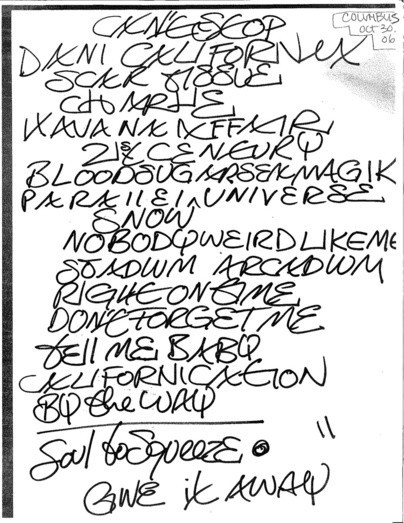 CAN'T STOP
COLUMBUS
OCT 30.
06
DANI CALIFORNIA
SCAR TISSUE
CHARLIE
HAVANA AFFAIR
21st CENTURY
BLOODSUGARSEXMAGIK
PARALLEL UNIVERSE
SNOW
NOBODY WEIRD LIKE ME
STADIUM ARCADIUM
RIGHT ON TIME
DON'T FORGET ME
tELL ME BABY
CALIFORNICATION
BY the WAY
Soul to Squeeze
GIVE it AWAY